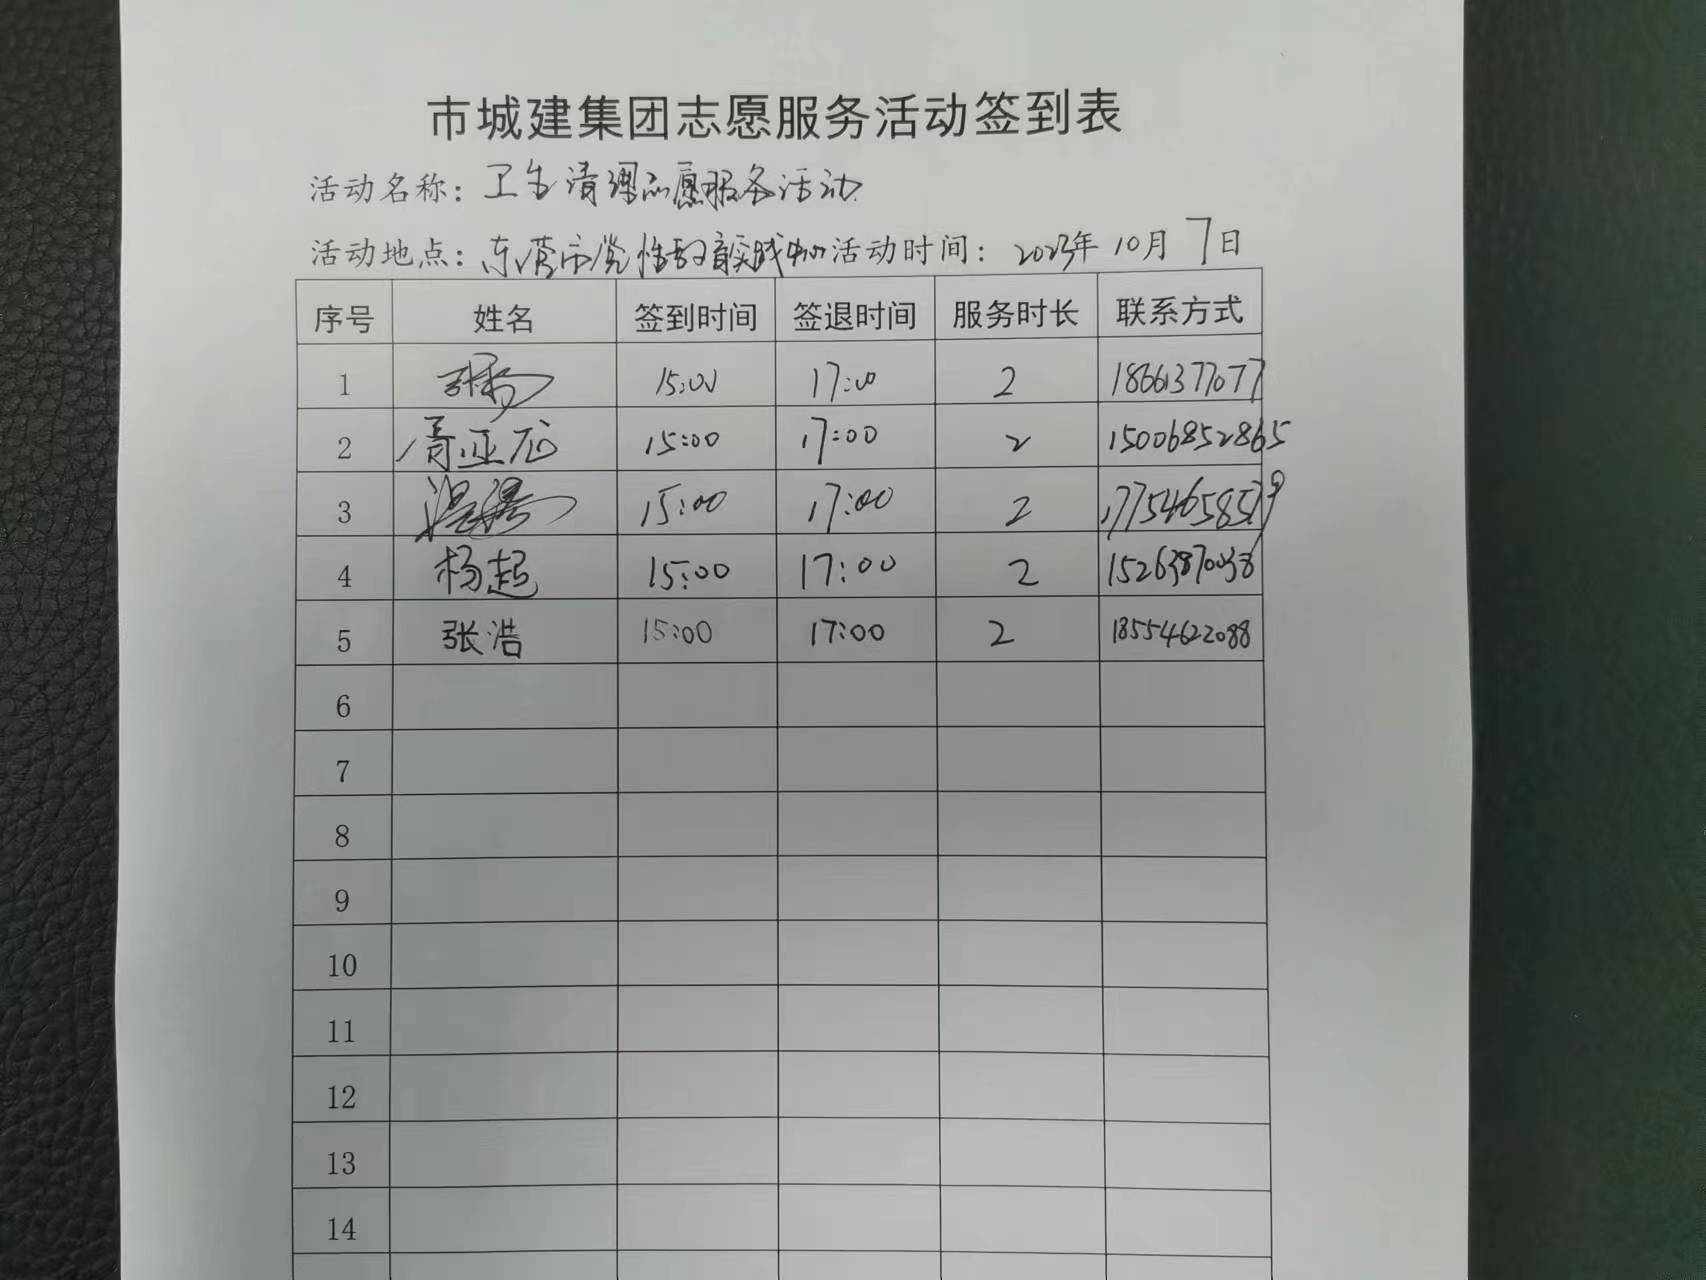 市城建集团志愿服务活动签到表
活动名称：卫生清理志愿服务活动
活动地点：东营市党性教育实践中心 活动时间：2023年 10月 7日
序号 姓名 签到时间 签退时间 服务时长 联系方式
1 15:00 17:00 2 18661377077
2 15:00 17:00 2 15006852865
3 15:00 17:00 2 17754658579
4 杨超 15:00 17:00 2 15263870038
5 张浩 15:00 17:00 2 18554622088
6
7
8
9
10
11
12
13
14